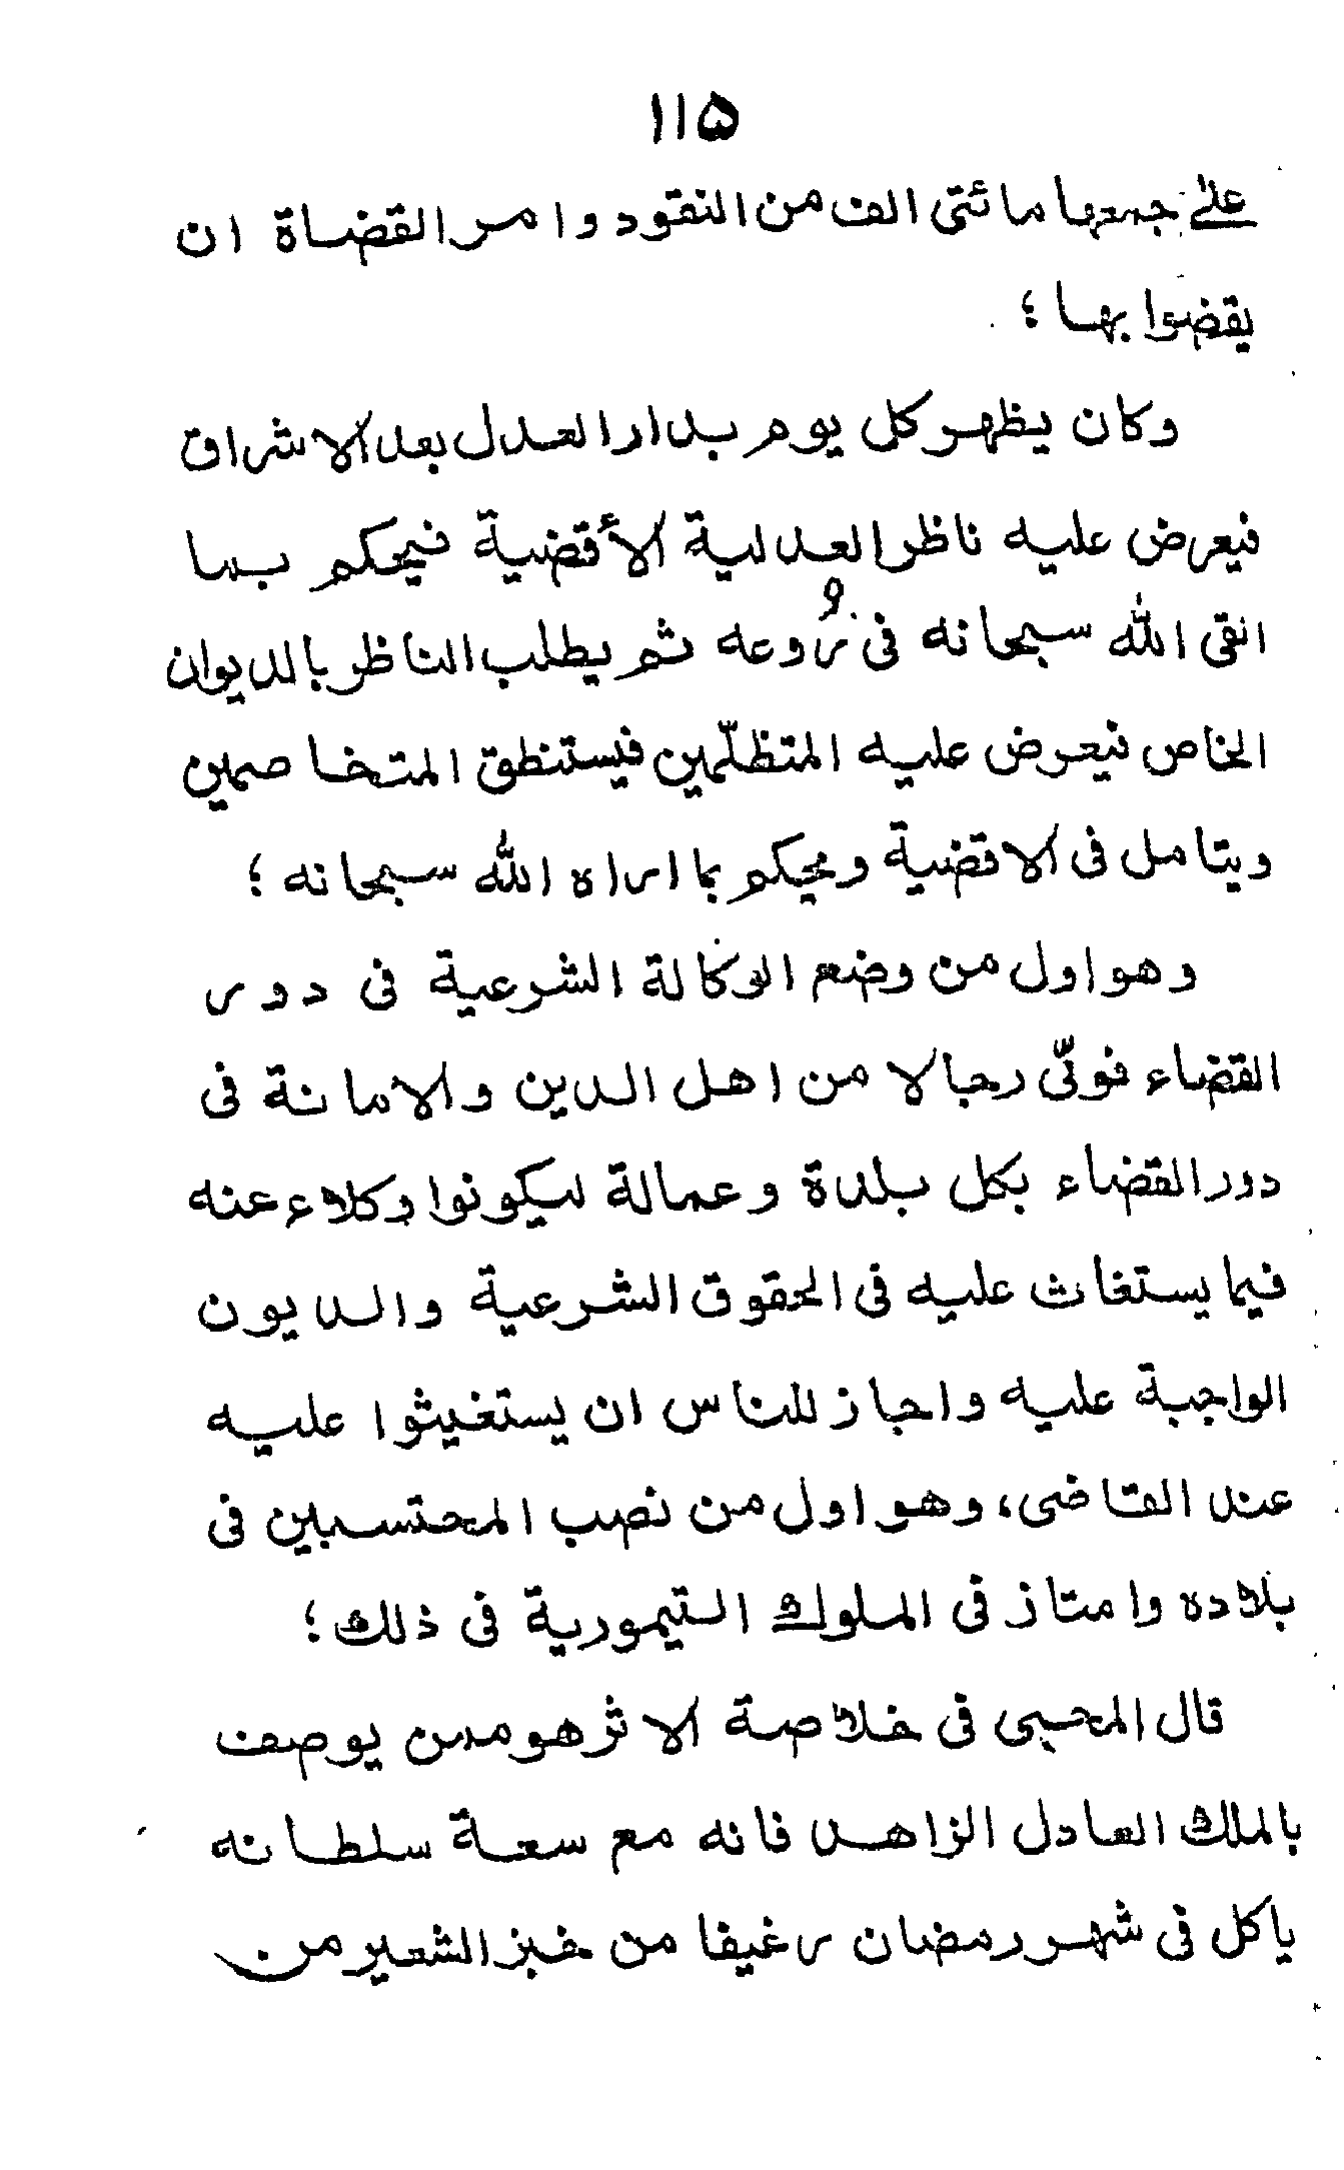 ۱۱۵
علیٰ جمعها مائتی الف من النقود وامر القضاة ان
یقضوا بها ؛
وکان یظهر کل یوم بدار العدل بعد الاشراق
فیعرض علیه ناظر العدلیة الأقضیة فیحکم بما
القی الله سبحانه فی رُوعه ثم یطلب الناظر بالدیوان
الخاص فیعرض علیه المتظلّمین فیستنطق المتخاصمین
ویتامل فی الاقضیة ویحکم بما اراه الله سبحانه ؛
وهو اول من وضع الوکالة الشرعیة فی دور
القضاء فولّی رجالا من اهل الدین والامانة فی
دور القضاء بکل بلدة وعمالة لیکونوا وکلاء عنه
فیما یستغاث علیه فی الحقوق الشرعیة والدیون
الواجبة علیه واجاز للناس ان یستغیثوا علیه
عند القاضی، وهو اول من نصب المحتسبین فی
بلاده وامتاز فی الملوك التیموریة فی ذلك ؛
قال المحبی فی خلاصة الاثر هو ممن یوصف
بالملك العادل الزاهد فانه مع سعة سلطانه
یاکل فی شهر رمضان رغیفا من خبز الشعیر من